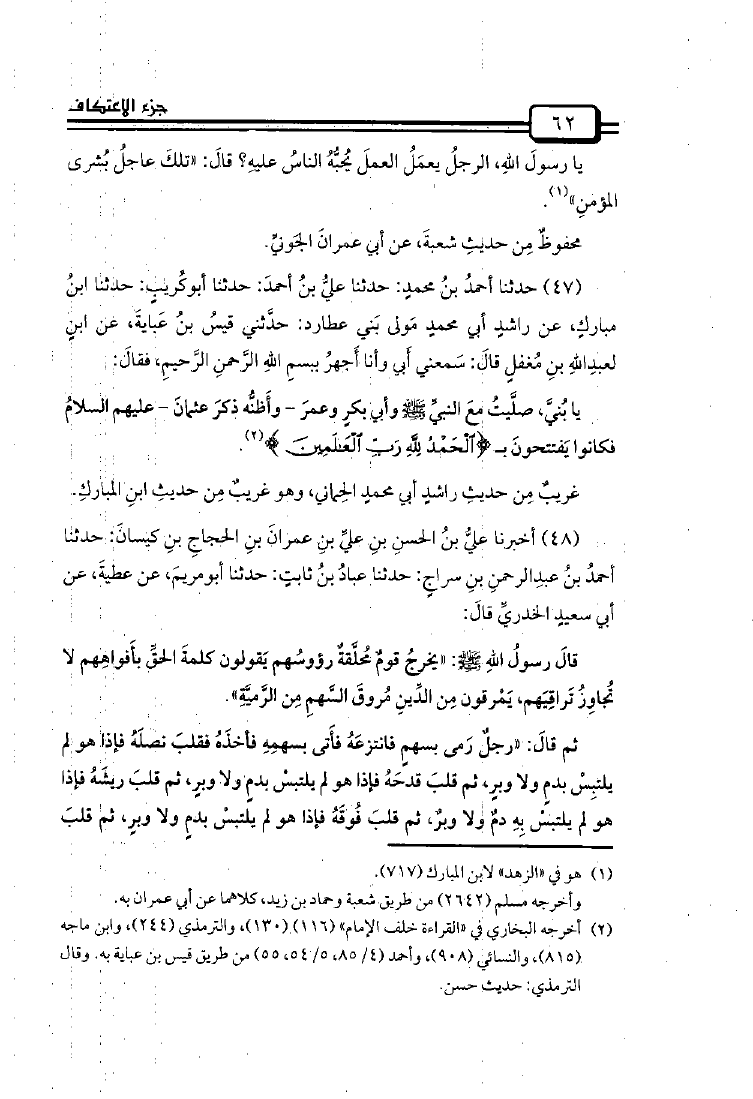 جزء الاعتكاف
٦٢
يا رسولَ اللهِ، الرجلُ يعمَلُ العملَ يُحبُّهُ الناسُ عليهِ؟ قالَ: «تلكَ عاجلُ بُشرى
المؤمنِ»(١).
محفوظٌ مِن حديثِ شعبةَ، عن أبي عمرانَ الجَونيِّ.
(٤٧) حدثنا أحمدُ بنُ محمدٍ: حدثنا عليُّ بنُ أحمدَ: حدثنا أبوكُريبٍ: حدثنا ابنُ
مباركٍ، عن راشدٍ أبي محمدٍ مَولى بَني عطارد: حدَّثني قيسُ بنُ عبايةَ، عن ابنٍ
لعبدِاللهِ بنِ مُغفلٍ قالَ: سَمعني أبي وأنا أَجهرُ ببسمِ اللهِ الرَّحمنِ الرَّحيمِ، فقالَ:
يا بُنيَّ، صلَّيتُ معَ النبيِّ ﷺ وأبي بكرٍ وعمرَ – وأَظنُّه ذكرَ عثمانَ – عليهم السلامُ
فكانوا يَفتتحونَ بـ ﴿ٱلْحَمْدُ لِلَّهِ رَبِّ ٱلْعَٰلَمِينَ﴾(٢).
غريبٌ مِن حديثِ راشدٍ أبي محمدٍ الحِماني، وهو غريبٌ مِن حديثِ ابنِ المباركِ.
(٤٨) أخبرنا عليُّ بنُ الحسنِ بنِ عليِّ بنِ عمرانَ بنِ الحجاجِ بنِ كيسانَ: حدثنا
أحمدُ بنُ عبدِالرحمنِ بنِ سراجٍ: حدثنا عبادُ بنُ ثابتٍ: حدثنا أبومريمَ، عن عطيةَ، عن
أبي سعيدٍ الخدريِّ قالَ:
قالَ رسولُ اللهِ ﷺ: «يخرجُ قومٌ مُحلَّقةٌ رؤوسُهم يَقولون كلمةَ الحقِّ بأَفواهِهم لا
تُجاوزُ تراقيَهم، يَمْرقون مِن الدِّينِ مُروقَ السَّهمِ مِن الرَّميَّةِ».
ثم قالَ: «رجلٌ رَمى بسهمٍ فانتزعَهُ فأَتى بسهمِهِ فأخذَهُ فقلبَ نصلَهُ فإذا هو لم
يلتبِسْ بدمٍ ولا وبرٍ، ثم قلبَ قدحَهُ فإذا هو لم يلتبسْ بدمٍ ولا وبرٍ، ثم قلبَ ريشَهُ فإذا
هو لم يلتبسْ بِهِ دمٌ ولا وبرٌ، ثم قلبَ فُوقَهُ فإذا هو لم يلتبسْ بدمٍ ولا وبرٍ، ثم قلبَ
(١) هو في «الزهد» لابن المبارك (٧١٧).
وأخرجه مسلم (٢٦٤٢) من طريق شعبة وحماد بن زيد، كلاهما عن أبي عمران به.
(٢) أخرجه البخاري في «القراءة خلف الإمام» (١١٦) (١٣٠)، والترمذي (٢٤٤)، وابن ماجه
(٨١٥)، والنسائي (٩٠٨)، وأحمد (٤/ ٨٥، ٥/ ٥٤، ٥٥) من طريق قيس بن عباية به. وقال
الترمذي: حديث حسن.